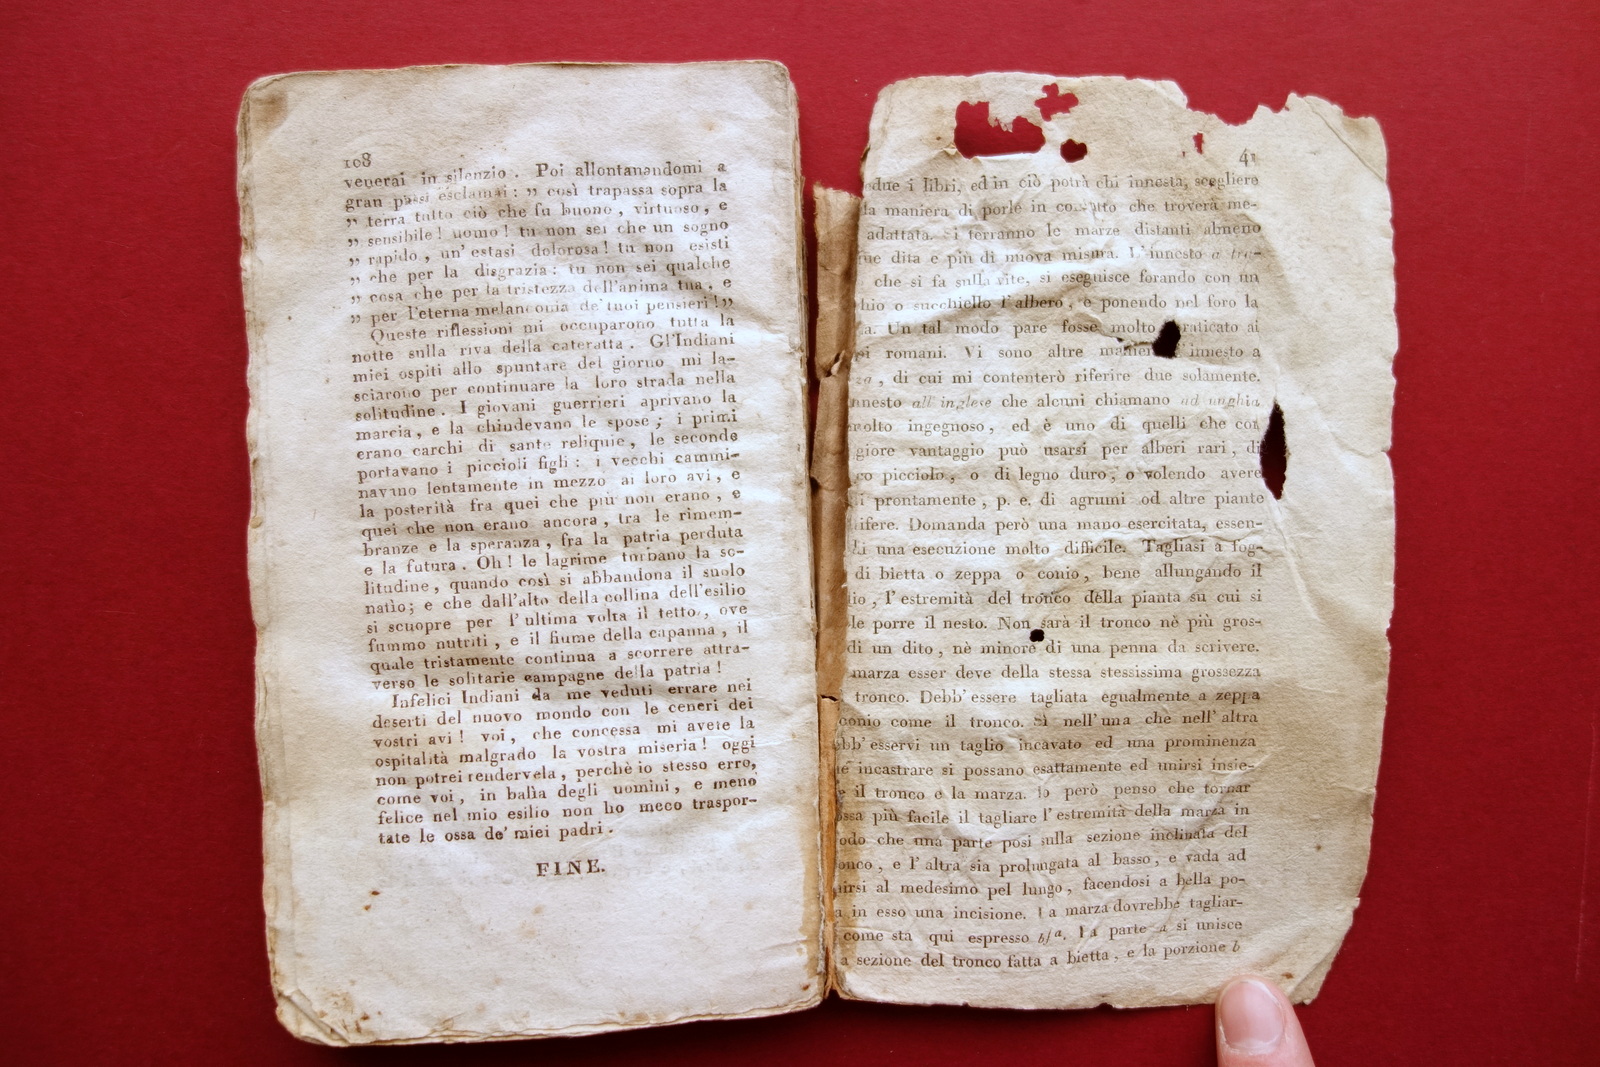 108
venerai in silenzio. Poi allontanandomi a
gran passi esclamai: „ così trapassa sopra la
„ terra tutto ciò che fu buono, virtuoso, e
„ sensibile! uomo! tu non sei che un sogno
„ rapido, un' estasi dolorosa! tu non esisti
„ che per la disgrazia: tu non sei qualche
„ cosa che per la tristezza dell'anima tua, e
„ per l'eterna melanconia de' tuoi pensieri!„
Queste riflessioni mi occuparono tutta la
notte sulla riva della cateratta. Gl'Indiani
miei ospiti allo spuntare del giorno mi la-
sciarono per continuare la loro strada nella
solitudine. I giovani guerrieri aprivano la
marcia, e la chiudevano le spose; i primi
erano carchi di sante reliquie, le seconde
portavano i piccioli figli: i vecchi cammi-
navano lentamente in mezzo ai loro avi, e
la posterità fra quei che più non erano, e
quei che non erano ancora, tra le rimem-
branze e la speranza, fra la patria perduta
e la futura. Oh! le lagrime turbano la so-
litudine, quando così si abbandona il suolo
natìo; e che dall'alto della collina dell'esilio
si scuopre per l'ultima volta il tetto, ove
fummo nutriti, e il fiume della capanna, il
quale tristamente continua a scorrere attra-
verso le solitarie campagne della patria!
Infelici Indiani da me veduti errare nei
deserti del nuovo mondo con le ceneri dei
vostri avi! voi, che concessa mi avete la
ospitalità malgrado la vostra miseria! oggi
non potrei rendervela, perchè io stesso erro,
come voi, in balìa degli uomini, e meno
felice nel mio esilio non ho meco traspor-
tate le ossa de' miei padri.
FINE.
41
edue i libri, ed in ciò potrà chi innesta, scegliere
la maniera di porle in che troverà me-
adattata. Si terranno le marze distanti almeno
due dita e più di nuova misura. L'innesto a tra-
che si fa sulla vite, si eseguisce forando con un
hio o succhiello l'albero, e ponendo nel foro la
a. Un tal modo pare fosse molto praticato ai
pi romani. Vi sono altre innesto a
za, di cui mi contenterò riferire due solamente.
nnesto all'inglese che alcuni chiamano ad unghia
molto ingegnoso, ed è uno di quelli che con
giore vantaggio può usarsi per alberi rari, di
co picciolo, o di legno duro, o volendo avere
i prontamente, p. e. di agrumi od altre piante
ifere. Domanda però una mano esercitata, essen-
di una esecuzione molto difficile. Tagliasi a fog-
di bietta o zeppa o conio, bene allungando il
lio, l'estremità del tronco della pianta su cui si
le porre il nesto. Non sarà il tronco nè più gros-
di un dito, nè minore di una penna da scrivere.
marza esser deve della stessa stessissima grossezza
tronco. Debb' essere tagliata egualmente a zeppa
conio come il tronco. Sì nell'una che nell'altra
bb' esservi un taglio incavato ed una prominenza
incastrare si possano esattamente ed unirsi insie-
e il tronco e la marza. Io però penso che tornar
ossa più facile il tagliare l'estremità della marza in
odo che una parte posi sulla sezione inclinata del
onco, e l'altra sia prolungata al basso, e vada ad
irsi al medesimo pel lungo, facendosi a bella po-
a in esso una incisione. La marza dovrebbe tagliar-
come sta qui espresso b/a. La parte a si unisce
a sezione del tronco fatta a bietta, e la porzione b